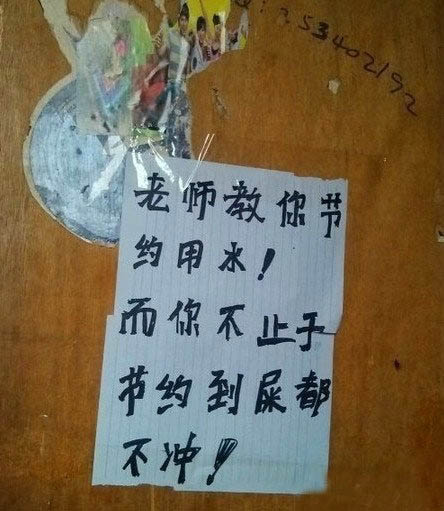 53402192
老师教你节
约用水！
而你不止于
节约到屎都
不冲！